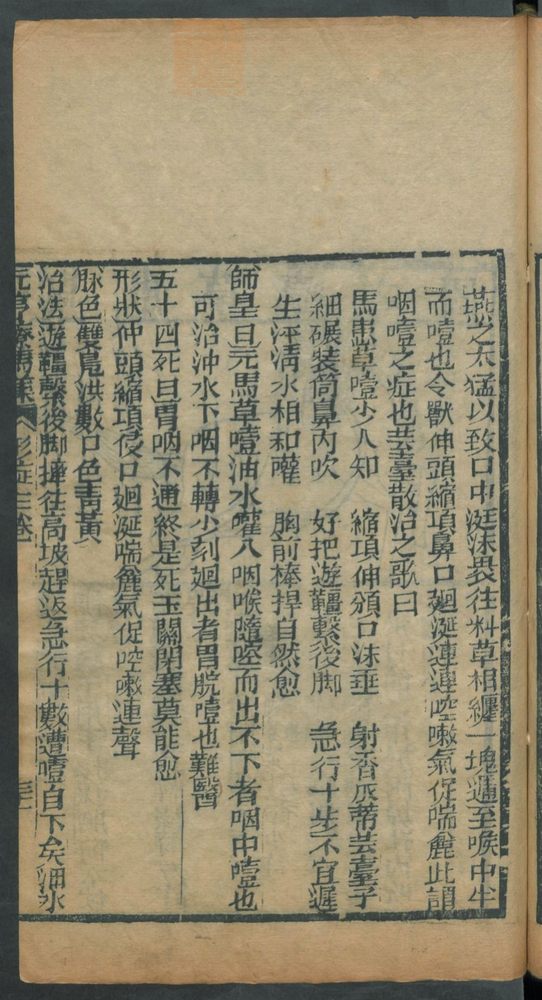 燕之太猛以致口中涎沫畏往料草相纏一塊逓至喉中生
而噎也令獸伸頭縮項鼻口廻涎連連啌嗽氣促喘麄此謂
咽噎之症也芸薹散治之歌曰
馬患草噎少人知　縮項伸頦口沫垂　射香瓜蒂芸薹子
細碾裝筒鼻內吹　好把遊韁繫後脚　急行十步不宜遲
生泙淸水相和嚾　胸前棒捍自然愈
師皇曰元馬草噎油水嚾入咽喉隨啌而出不下者咽中噎也
可治沖水下咽不轉少刻廻出者胃脘噎也難醫
五十四死曰胃呐不通終是死玉關閉塞莫能愈
形狀仲頭縮項侵口廻涎喘麄氣促啌嗽連聲
脉色雙鳧洪數口色靑黃
治法遊韁繫後脚攆往高坡趕返急行十數遭噎自下矣細水
元亨療馬集　形症三卷